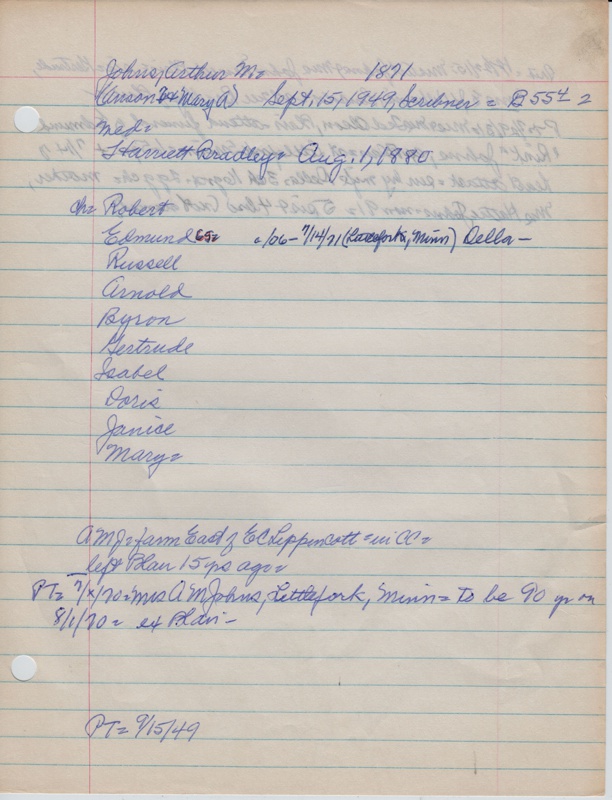 Johns, Arthur M= 1871
(Anson & Mary A) Sept. 15, 1949, Scribner = B554 2
med=
Harriett Bradley= Aug. 1, 1880
ch= Robert
Edmund 65= /06 - 7/14/71 (Littlefork, Minn) Della -
Russell
Arnold
Byron
Gertrude
Isabel
Doris
Janise
Mary=
AMJ= farm East of EC Lippincott = in CC=
left Blair 15 yrs ago=
PT= 7/ /70= Mrs AM Johns, Littlefork, Minn= to be 90 yr on
8/1/70= ex Blair-
PT= 9/15/49